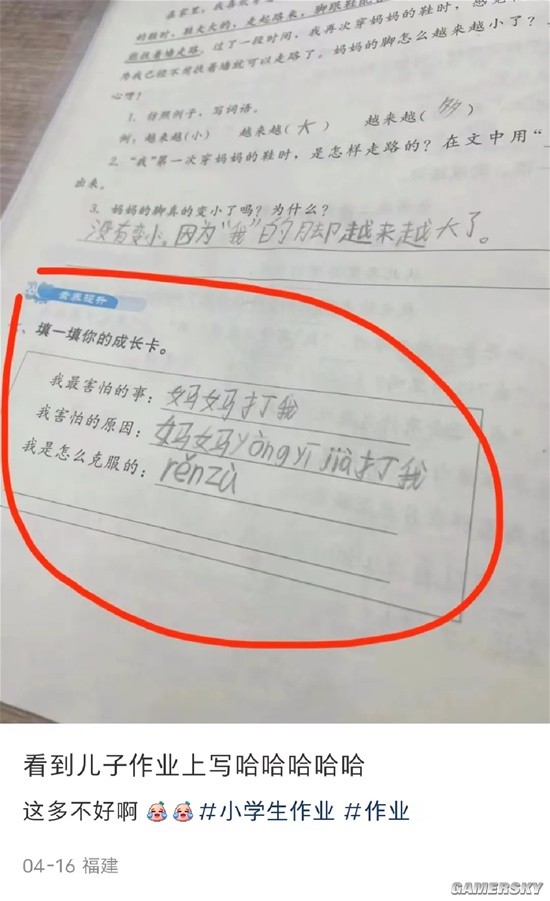 在家里，我喜欢穿
的鞋时，鞋大大的，走起路来，脚跟鞋
能扶着墙走路。过了一段时间，我再次穿妈妈的鞋时，感觉
为我已经不用扶着墙就可以走路了。妈妈的脚怎么越来越小了？
心呀！
1. 仿照例子，写词语。
例：越来越(小) 越来越(大) 越来越(多)
2. “我”第一次穿妈妈的鞋时，是怎样走路的？在文中用“
出来。
3. 妈妈的脚真的变小了吗？为什么？
没有变小，因为“我”的脚越来越大了。
素养提升
、填一填你的成长卡。
我最害怕的事：妈妈打我
我害怕的原因：妈妈yòng yī jià打我
我是怎么克服的：rěn zù
看到儿子作业上写哈哈哈哈哈
这多不好啊 😂😂 #小学生作业 #作业
04-16 福建
GAMERSKY